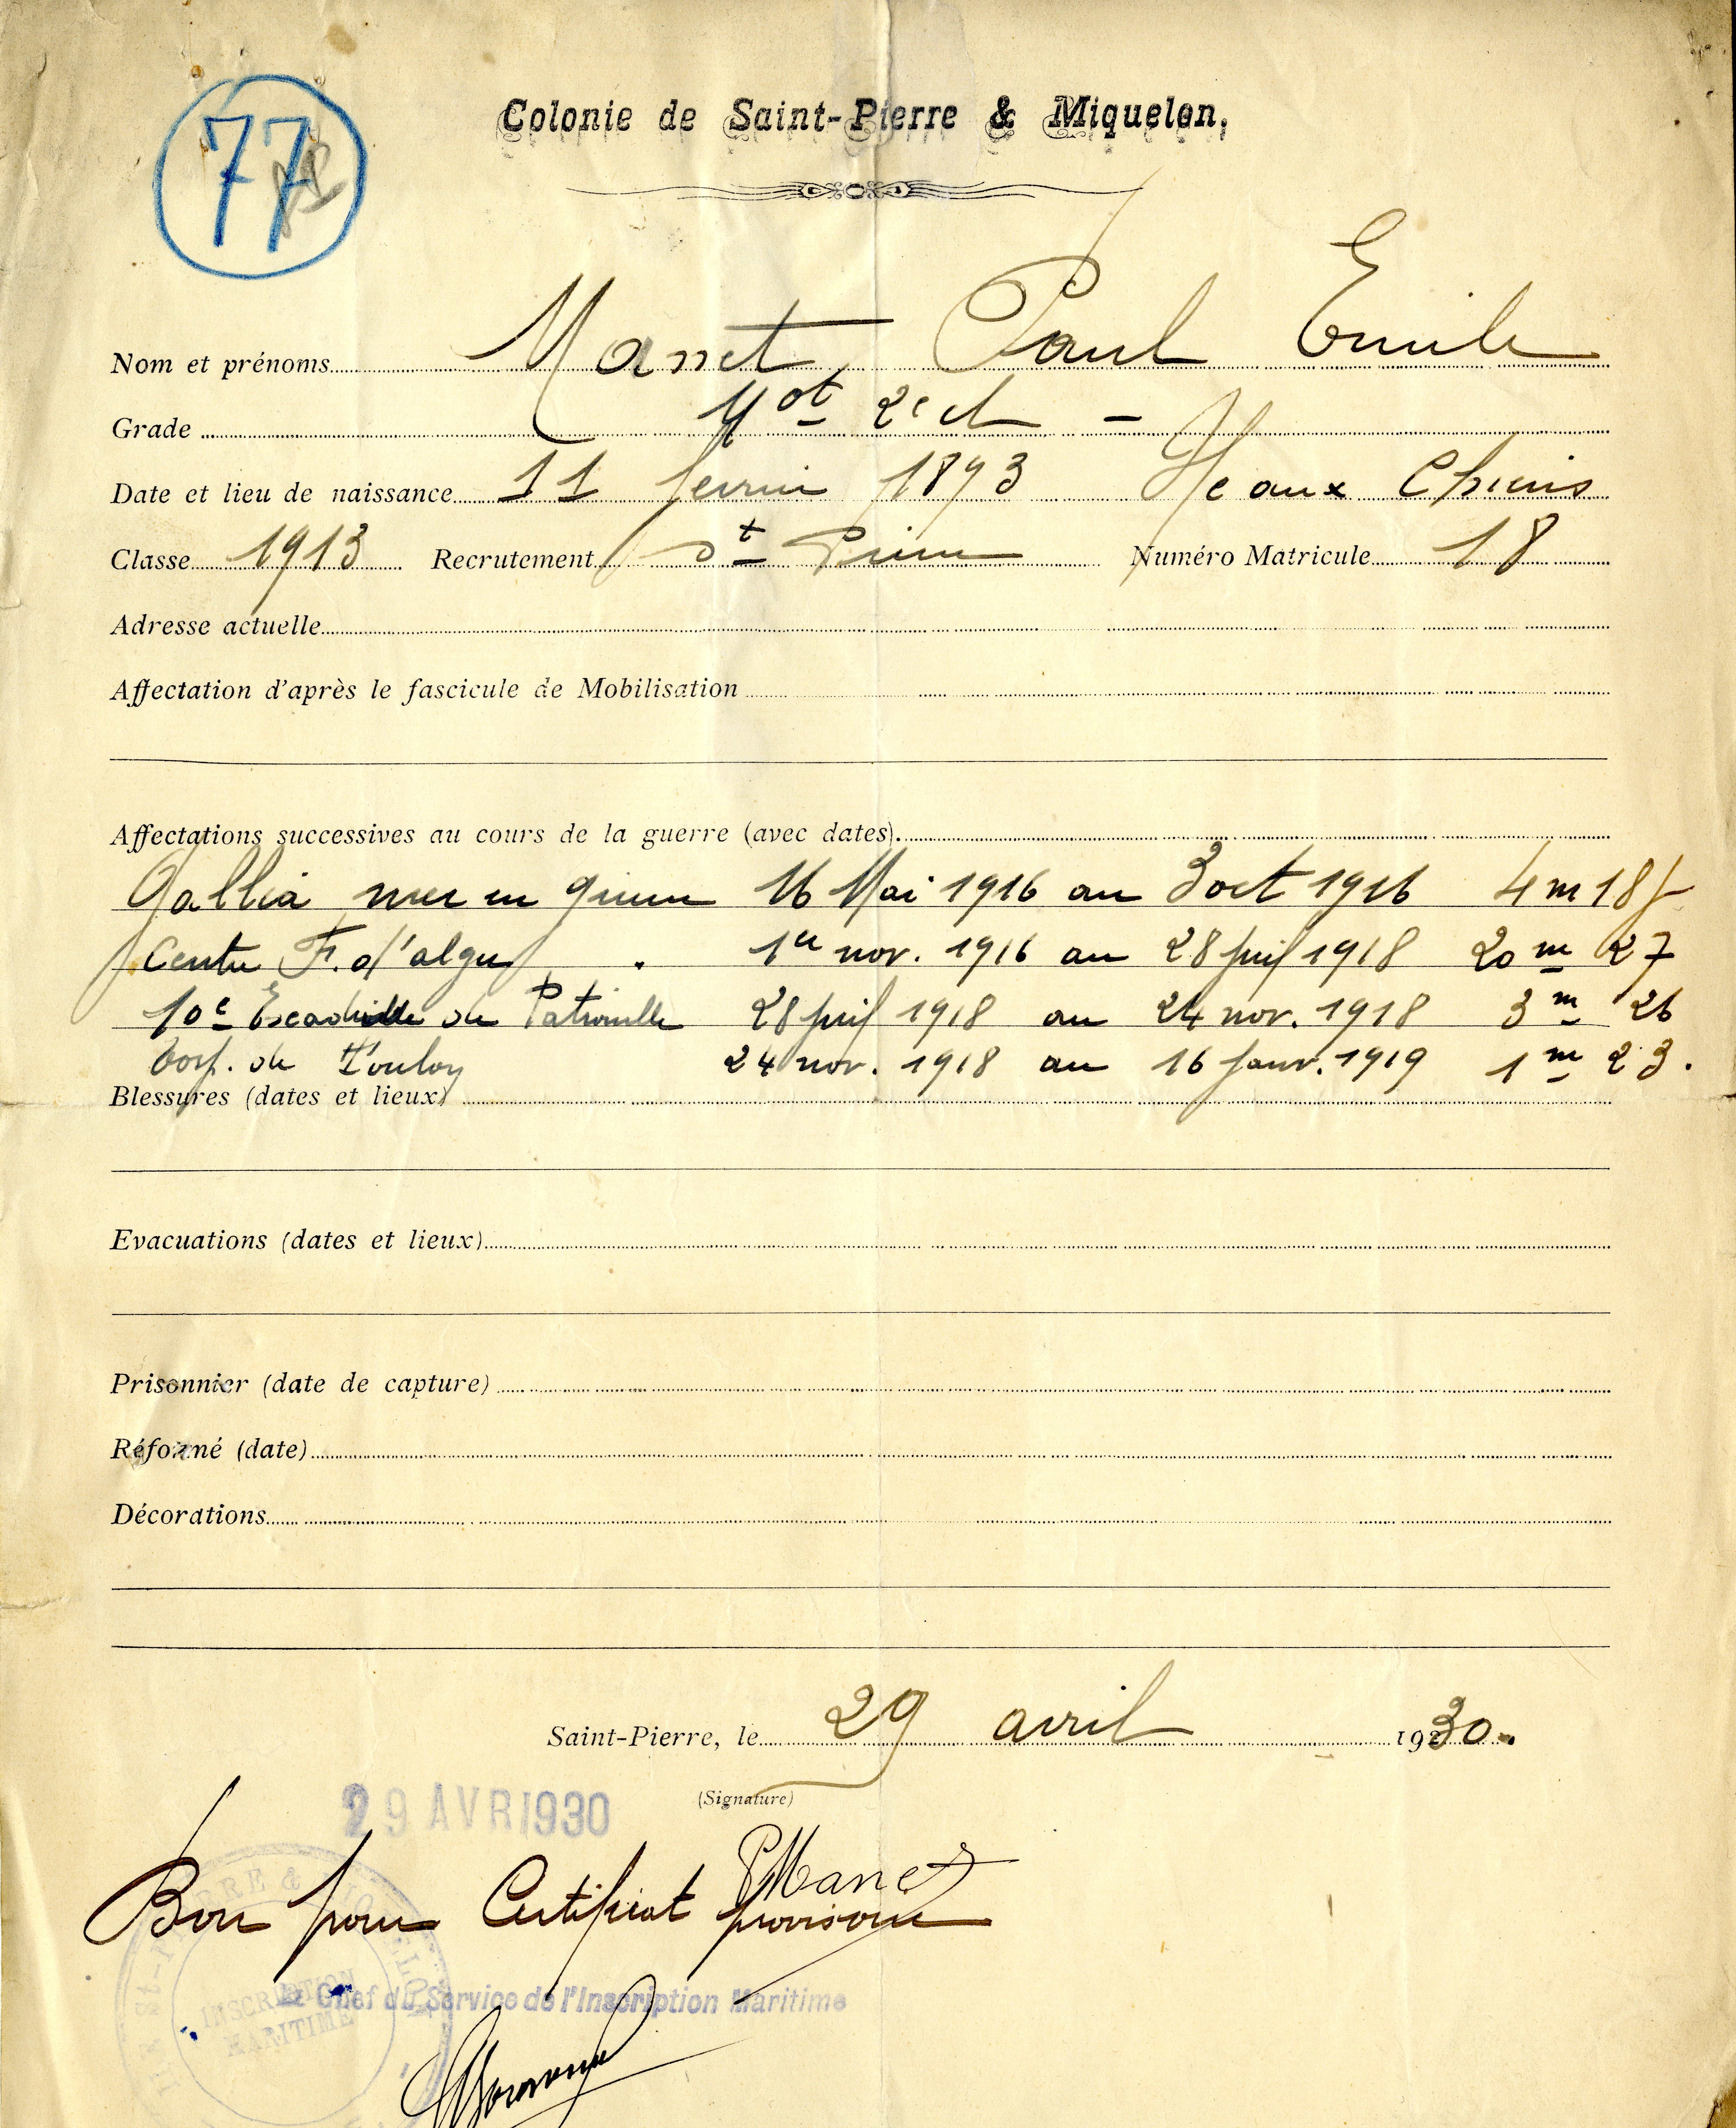 77
Colonie de Saint-Pierre & Miquelon.
Nom et prénoms Manet Paul Emile
Grade Mot 2e cl —
Date et lieu de naissance 11 fevrier 1893 Ile aux Chiens
Classe 1913 Recrutement St Pierre Numéro Matricule 18
Adresse actuelle
Affectation d'après le fascicule de Mobilisation
Affectations successives au cours de la guerre (avec dates).
Gallia mer en guerre 16 Mai 1916 au 3 oct 1916 4 m 18 j
Centre F. d'alger 1er nov. 1916 au 28 juil 1918 20 m 27
10e Escadrille de Patrouille 28 juil 1918 au 24 nov. 1918 3 m 26
de Toulon 24 nov. 1918 au 16 janv. 1919 1 m 23.
Blessures (dates et lieux)
Evacuations (dates et lieux)
Prisonnier (date de capture)
Réformé (date)
Décorations
Saint-Pierre, le 29 avril 1930.
(Signature)
29 AVR 1930
PManet
Bon pour Certificat provisoire
Le Chef du Service de l'Inscription Maritime
ST-PIERRE & MIQUELON
INSCRIPTION
MARITIME